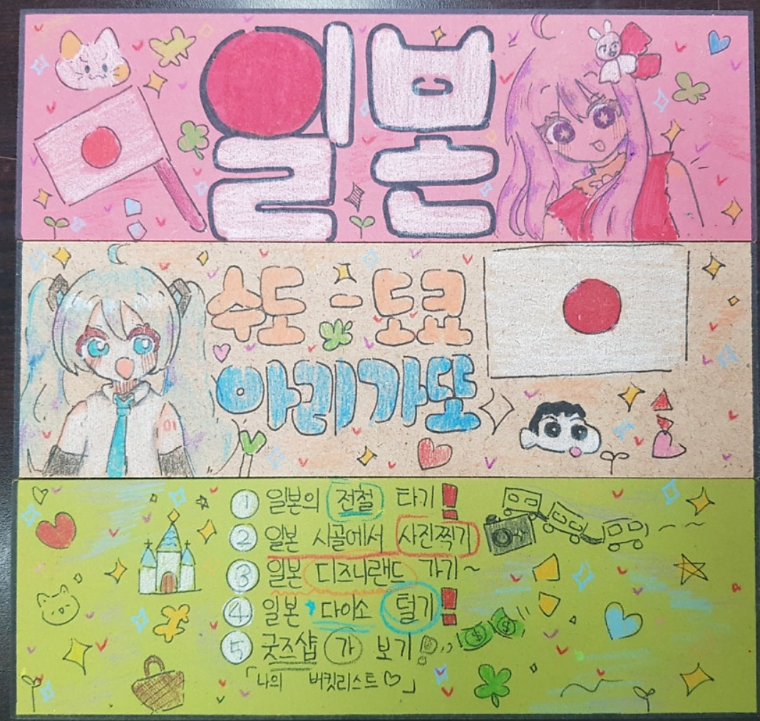 일본
수도 = 도쿄
아리가또
01
① 일본의 전철 타기!
② 일본 시골에서 사진찍기
③ 일본 디즈니랜드 가기~
④ 일본 다이소 털기!
⑤ 굿즈샵 가 보기!
「나의 버킷리스트♡」